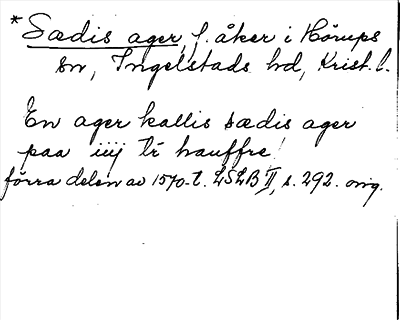 * Sædis ager, f. åker i Hörups
sn, Ingelstads hd, Krist. l.
En ager kallis sædis ager
paa iiij tr hauffre
förra delen av 1570-t. LSLB II, s. 292. orig.